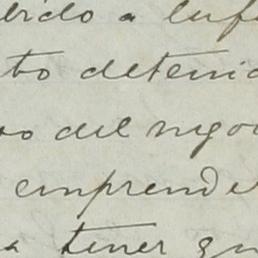 bido a
to deteni
o del nego
emprende
a tener